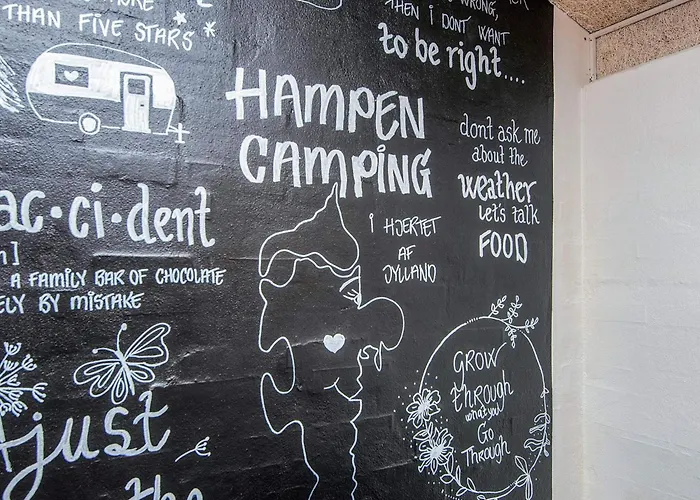 THAN FIVE STARS
WRONG,
THEN I DONT WANT
to be right....
HAMPEN
CAMPING
I HJERTET
AF
JYLLAND
dont ask me
about the
weather
let's talk
FOOD
ac·ci·dent
]
A FAMILY BAR OF CHOCOLATE
BY MISTAKE
GROW
through
what you
Go
Through
just
the